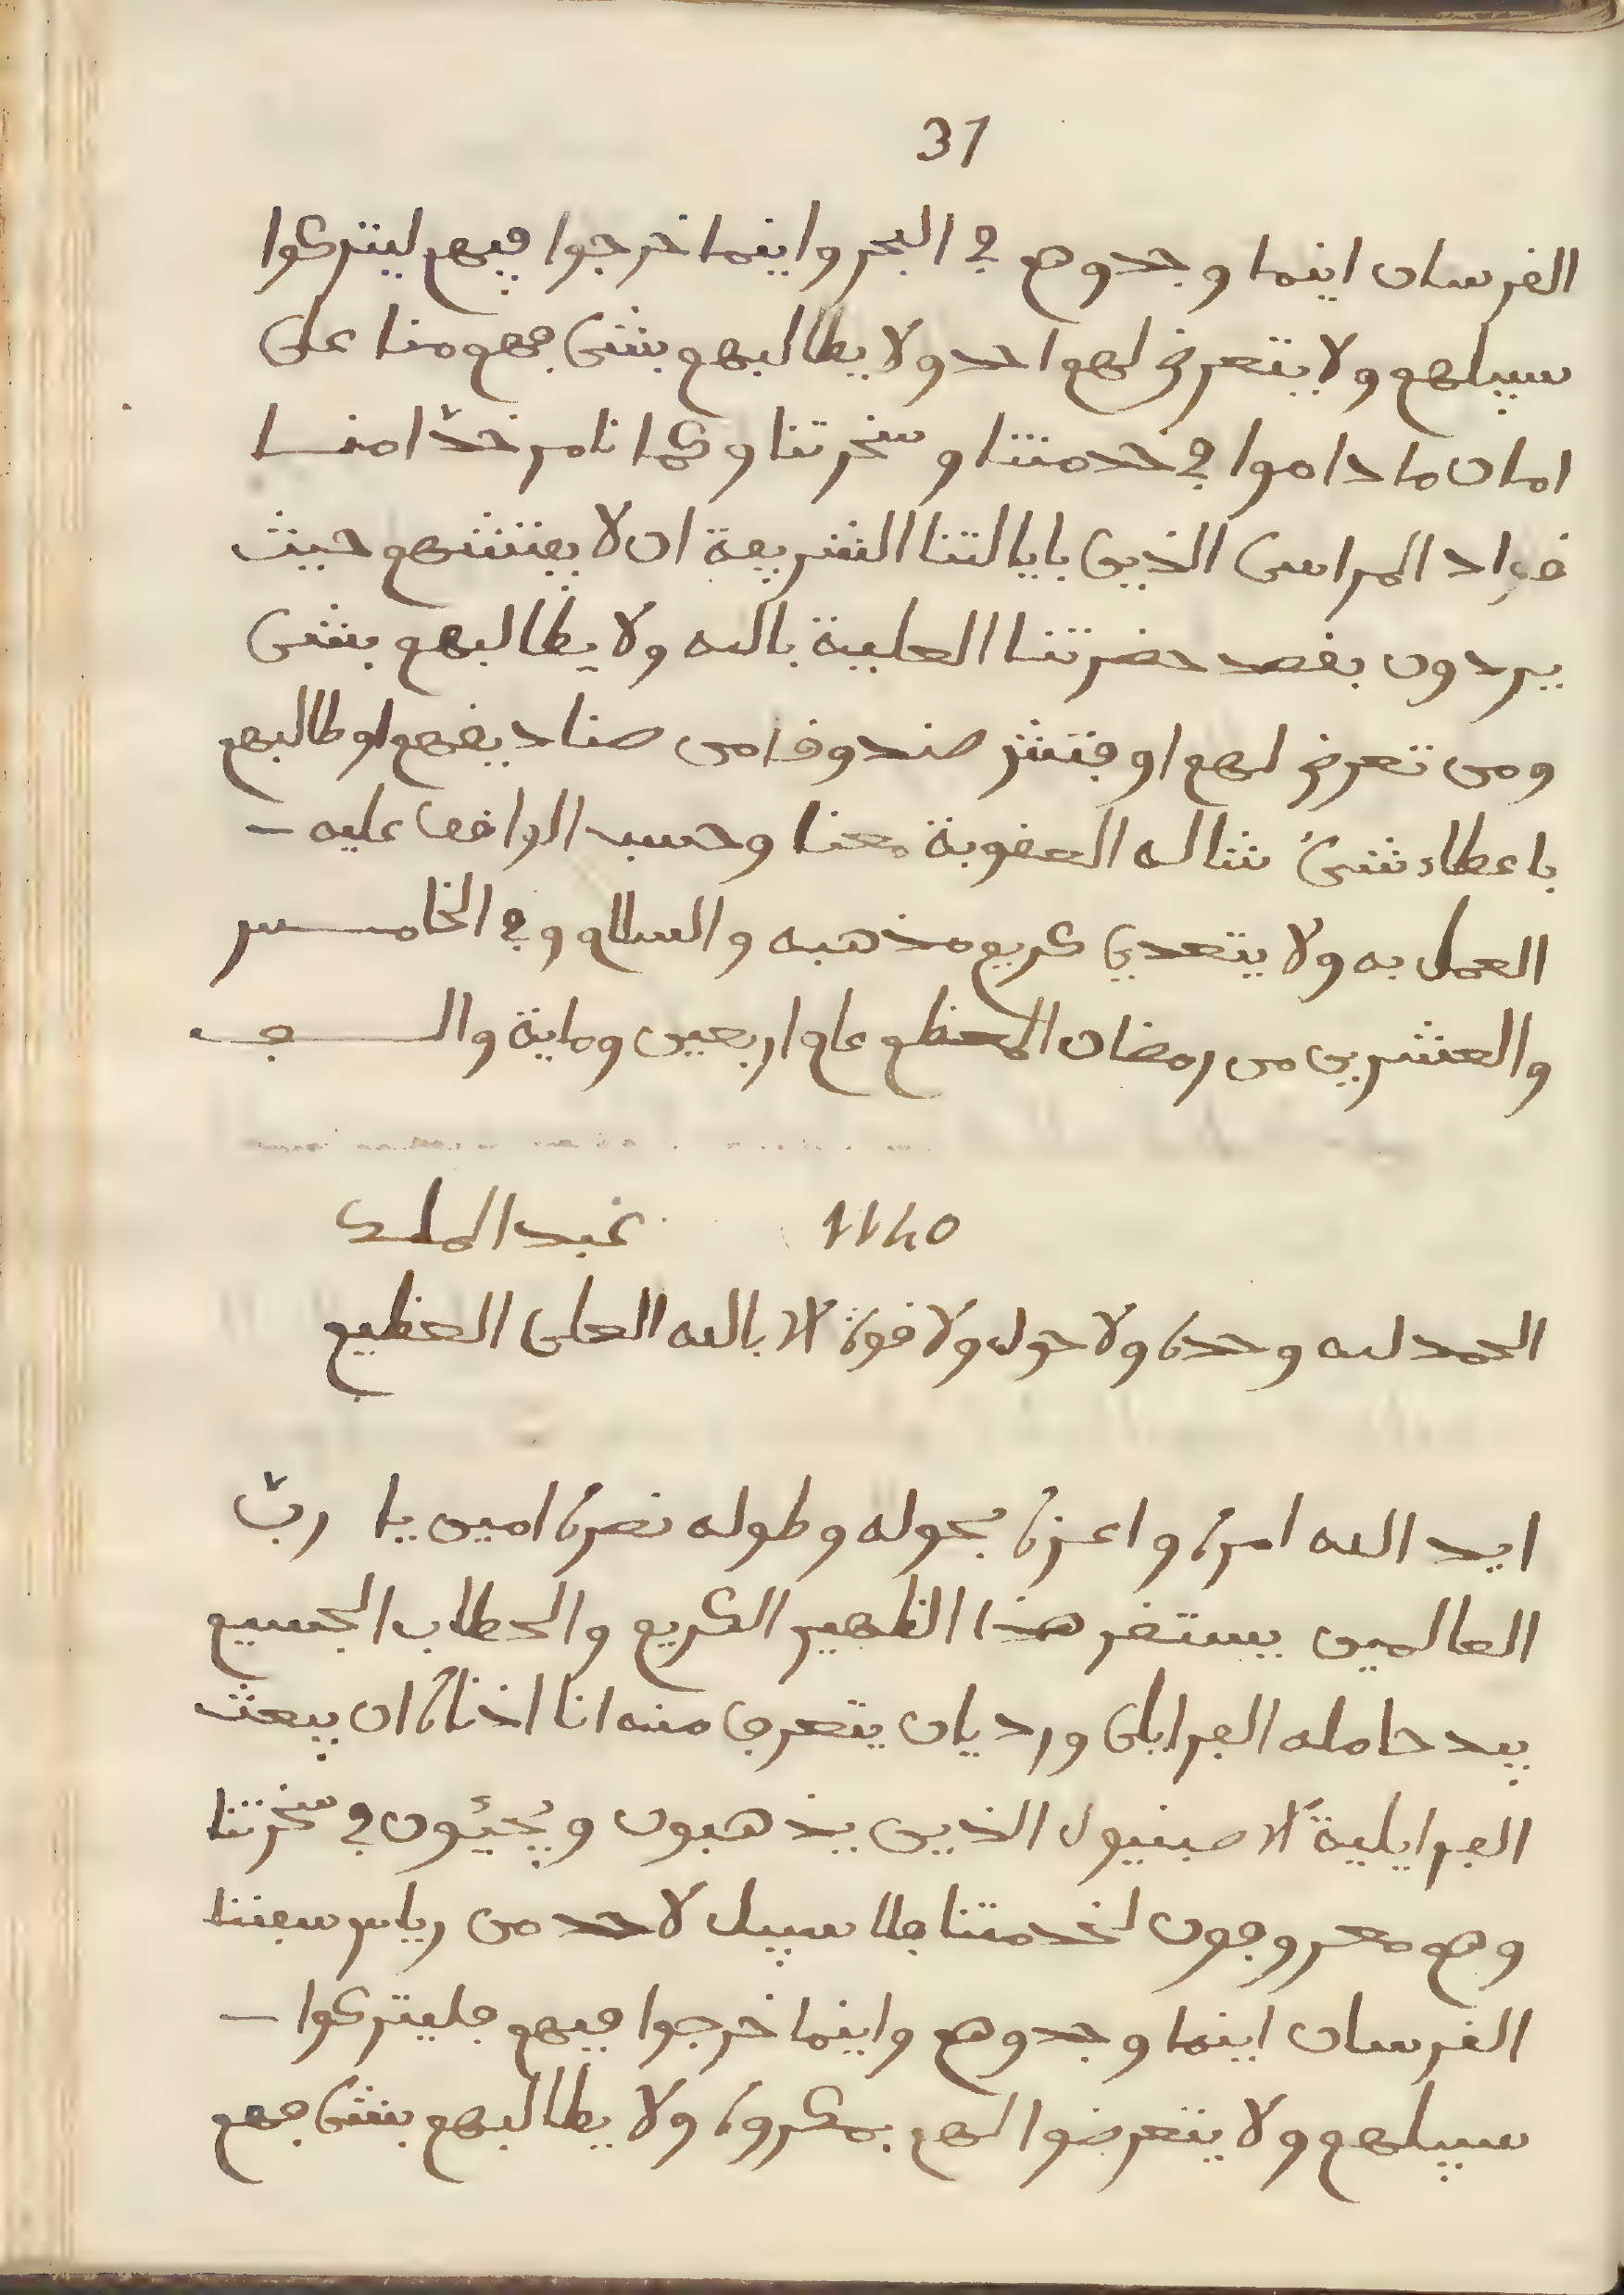 31
الفرسان اينما وجدوهم في البحر واينما خرجوا فيهم ليتركوا
سبيلهم ولا يتعرض لهم احد ولا يطالبهم بشىء فهم منا على
امان ما داموا في خدمتنا وسخرتنا وكما نامر خدّامنا
قواد المراسى الذين بايالتنا الشريفة ان لا يفتشهم حيث
يردون بقصد حضرتنا العلية بالله ولا يطالبهم بشىء
ومن تعرض لهم او فتش صندوقا من صناديقهم او طالبهم
باعطاء شىء تناله العقوبة معنا وحسب الواقف عليه
العمل به ولا يتعدي كريم مذهبه والسلام وفي الخامس
والعشرين من رمضان المعظم عام اربعين وماية والف
1140 عبد الملك
الحمد لله وحده ولا حول ولا قوة الا بالله العلى العظيم
ايد الله امره واعزه بحوله وطوله نصره امين يا ربّ
العالمين يستقر هذا الظهير الكريم والخطاب الجسيم
بيد حامله الفرايلى ورديان يتعرف منه انا اذناه ان يبعث
الفرايلية الاصبنيول الذين يذهبون ويجيئون في سخرتنا
وهم معروفون لخدمتنا فلا سبيل لاحد من رياس سفننا
الفرسان اينما وجدوهم واينما خرجوا فيهم فليتركوا
سبيلهم ولا يتعرضوا لهم بمكروه ولا يطالبهم بشىء فهم